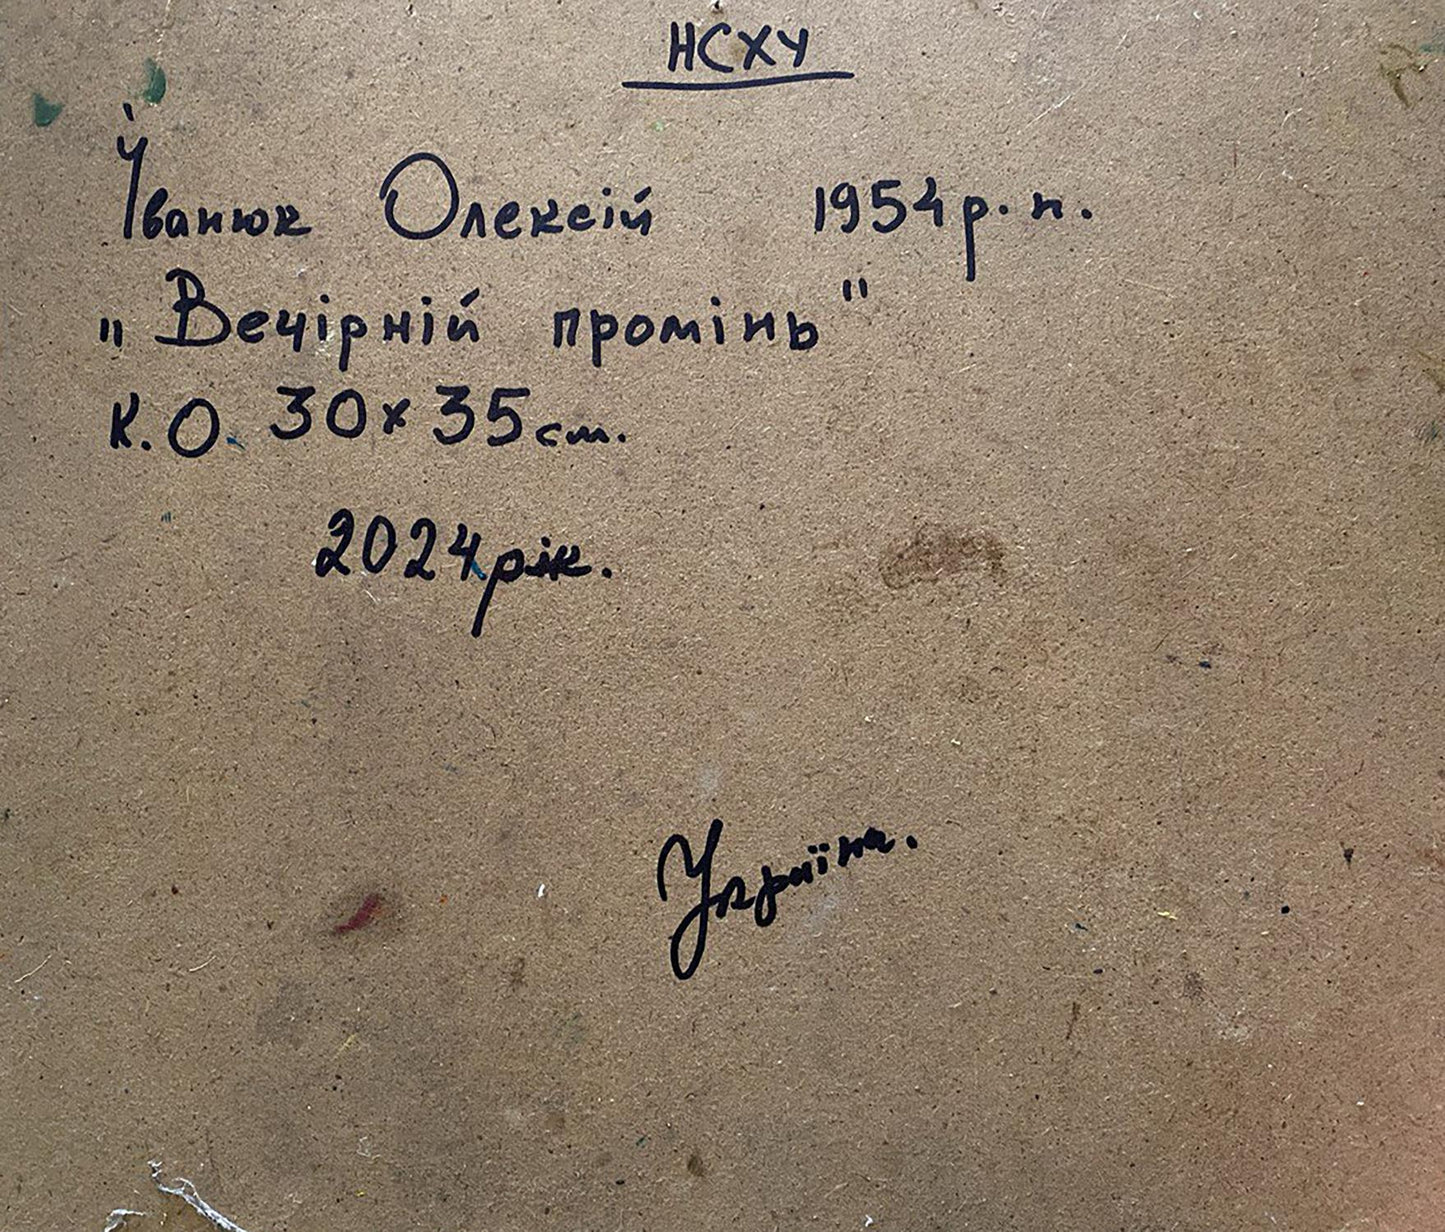 НСХУ
Іванюк Олексій 1954 р. н.
„Вечірній промінь"
К.О. 30х35 см.
2024 рік.
Україна.